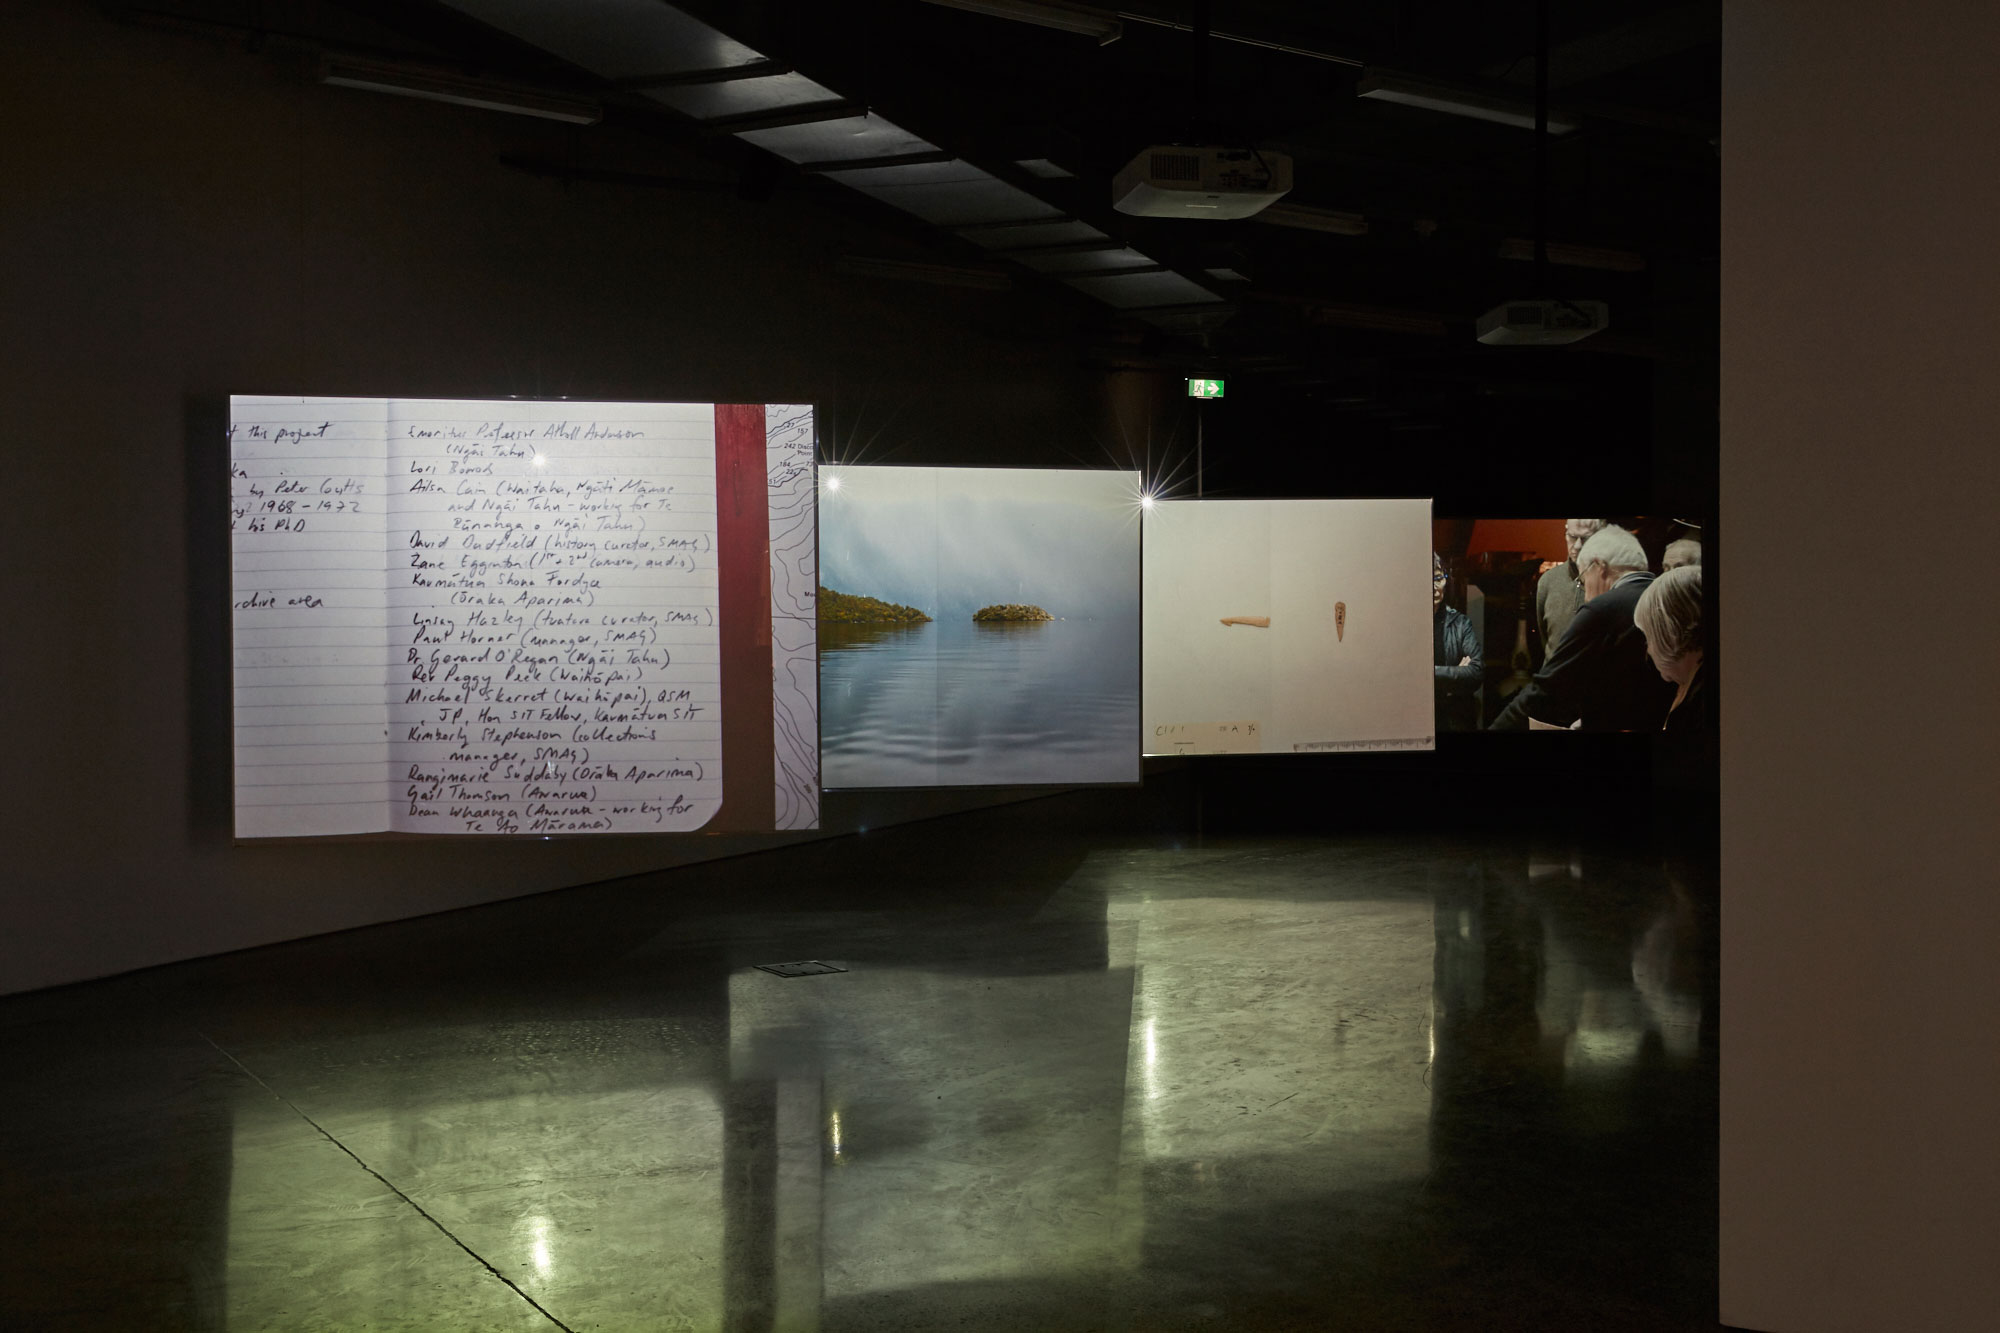 this project
by Peter Coutts
1968 - 1972
his PhD
archive area
Emeritus Professor Atholl Anderson
(Ngāi Tahu)
Lori
Ailsa Cain (Waitaha, Ngāti Māmoe
and Ngāi Tahu - working for Te
Rūnanga o Ngāi Tahu)
David Dudfield (history curator, SMAG)
Zane Egginton (1st + 2nd camera, audio)
Kaumātua Shona Fordyce
(Ōraka Aparima)
Linsay Hazley (tuatara curator, SMAG)
Paul Horner (manager, SMAG)
Dr Gerard O'Regan (Ngāi Tahu)
Rev Peggy Peek (Waihōpai)
Michael Skerret (Waihōpai), QSM
, JP, Hon SIT Fellow, Kaumātua SIT
Kimberly Stephenson (collections
manager, SMAG)
Rangimarie Suddaby (Ōraka Aparima)
Gail Thomson (Awarua)
Dean Whaanga (Awarua - working for
Te Ao Mārama)
27
157
242
184